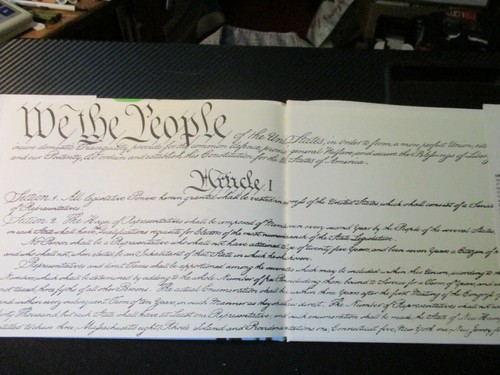 We the People of the United States, in order to form a more perfect Union,
insure domestic Tranquility, provide for the common defence, promote general Welfare, and secure the Blessings of
and our Posterity, do ordain and establish this Constitution for the States of America.
Article I
Section 1. All legislative Powers herein granted shall be vested in of the United States, which shall consist of a Senate
of Representatives.
Section 2. The House of Representatives shall be composed of Members every second Year by the People of the several States,
in each State shall have Qualifications requisite for Electors of the most numerous of the State Legislature.
No Person shall be a Representative who shall not have attained to of twenty five Years, and been seven Years a Citizen of
and who shall not, when elected, be an Inhabitant of that State in which he shall
Representatives and direct Taxes shall be apportioned among the several which may be included within this Union, according to
Numbers, which shall be determined by adding to the whole Number of including those bound to Service for a Term of Years, and
not taxed, three fifths of all other Persons. The actual Enumeration shall be within three Years after the first Meeting of the Congress
and within every subsequent Term of ten Years, in such Manner as they shall direct. The Number of Representatives shall not
thirty Thousand, but each State shall have at Least one Representative; and such enumeration shall be made, the State of New
entitled to chuse three, Massachusetts eight, Rhode Island and Providence one, Connecticut five, New York six, New Jersey